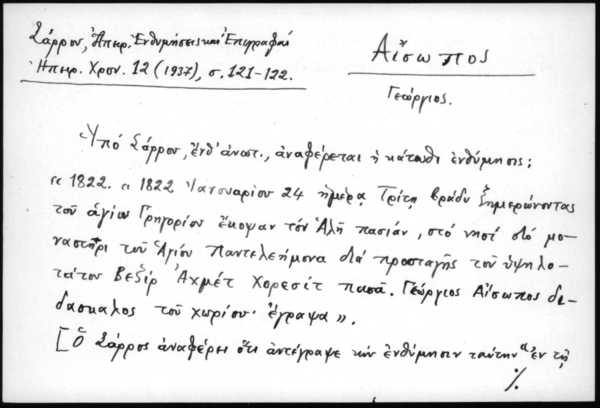 Σάρρου, Ἠπειρ. Ἐνθυμήσεις καὶ Ἐπιγραφαί
Ἠπειρ. Χρον. 12 (1937), σ. 121-122.
Αἴσωπος
Γεώργιος.
Ὑπό Σάρρου, ἔνθ' ἀνωτ., ἀναφέρεται ἡ κάτωθι ἐνθύμησις:
« 1822. « 1822 Ἰανουαρίου 24 ἡμέρᾳ Τρίτῃ βράδυ ξημερώνοντας
τοῦ ἁγίου Γρηγορίου ἔκοψαν τόν Ἀλῆ πασιάν, στό νησί στό μο-
ναστῆρι τοῦ Ἁγίου Παντελεήμονα διά προσταγῆς τοῦ ὑψηλο-
τάτου Βεζίρ Ἀχμέτ Χορεσίτ πασᾶ. Γεώργιος Αἴσωπος δι-
δάσκαλος τοῦ χωρίου· ἔγραψα ».
[Ὁ Σάρρος ἀναφέρει ὅτι ἀντέγραψε τήν ἐνθύμησιν ταύτην "ἐν τῇ
%.